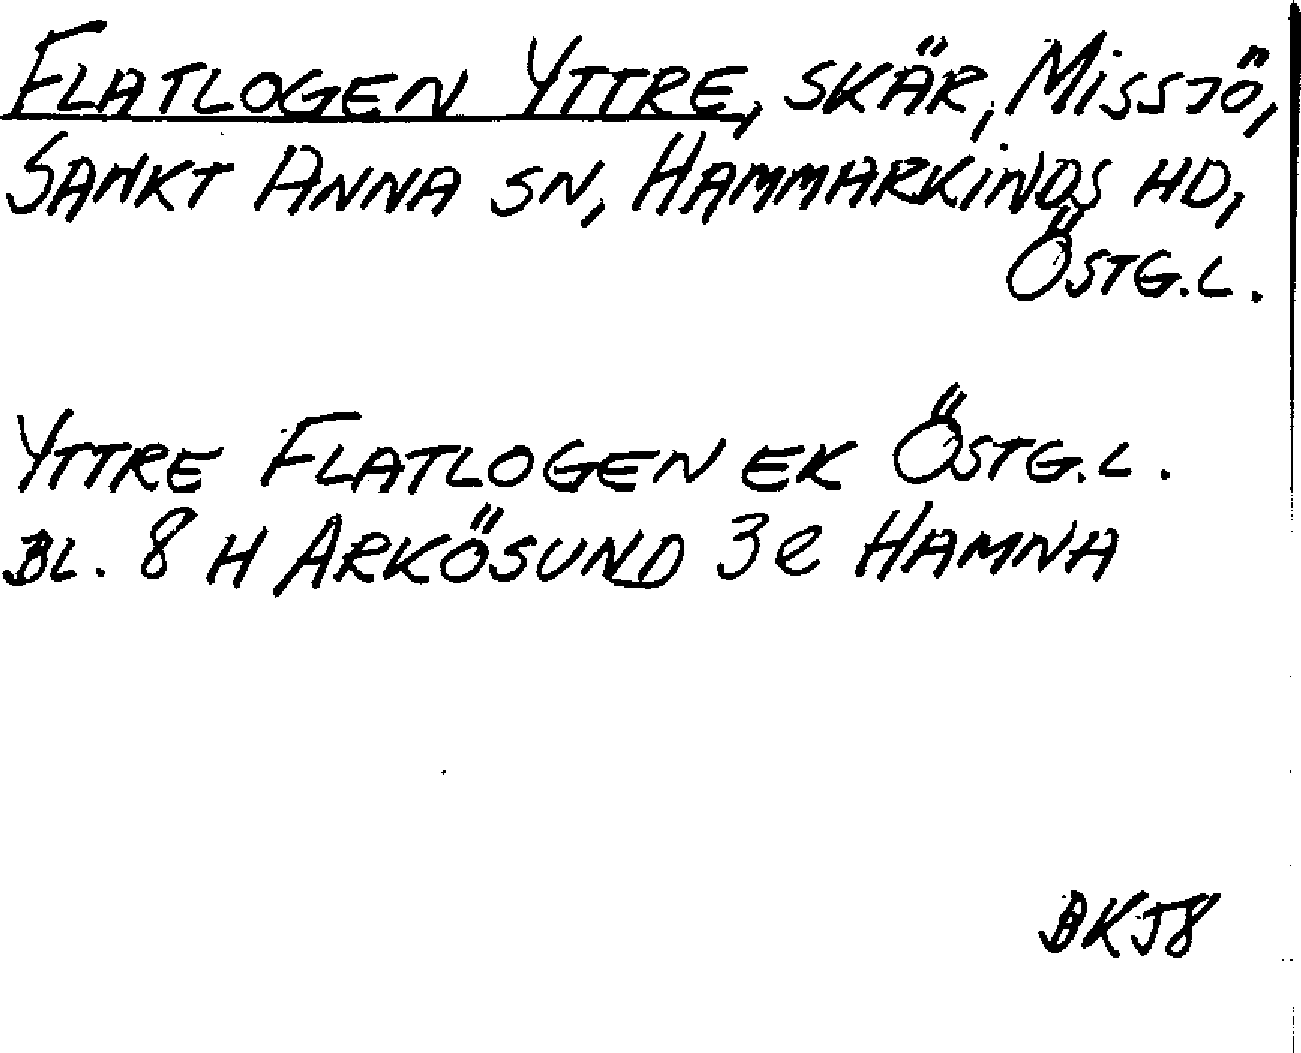 FLATLOGEN YTTRE, SKÄR, MISSJÖ,
SANKT ANNA SN, HAMMARKINDS HD,
ÖSTG.L.
YTTRE FLATLOGEN EK ÖSTG.L.
BL. 8 H ARKÖSUND 3e HAMNA
BKJ8